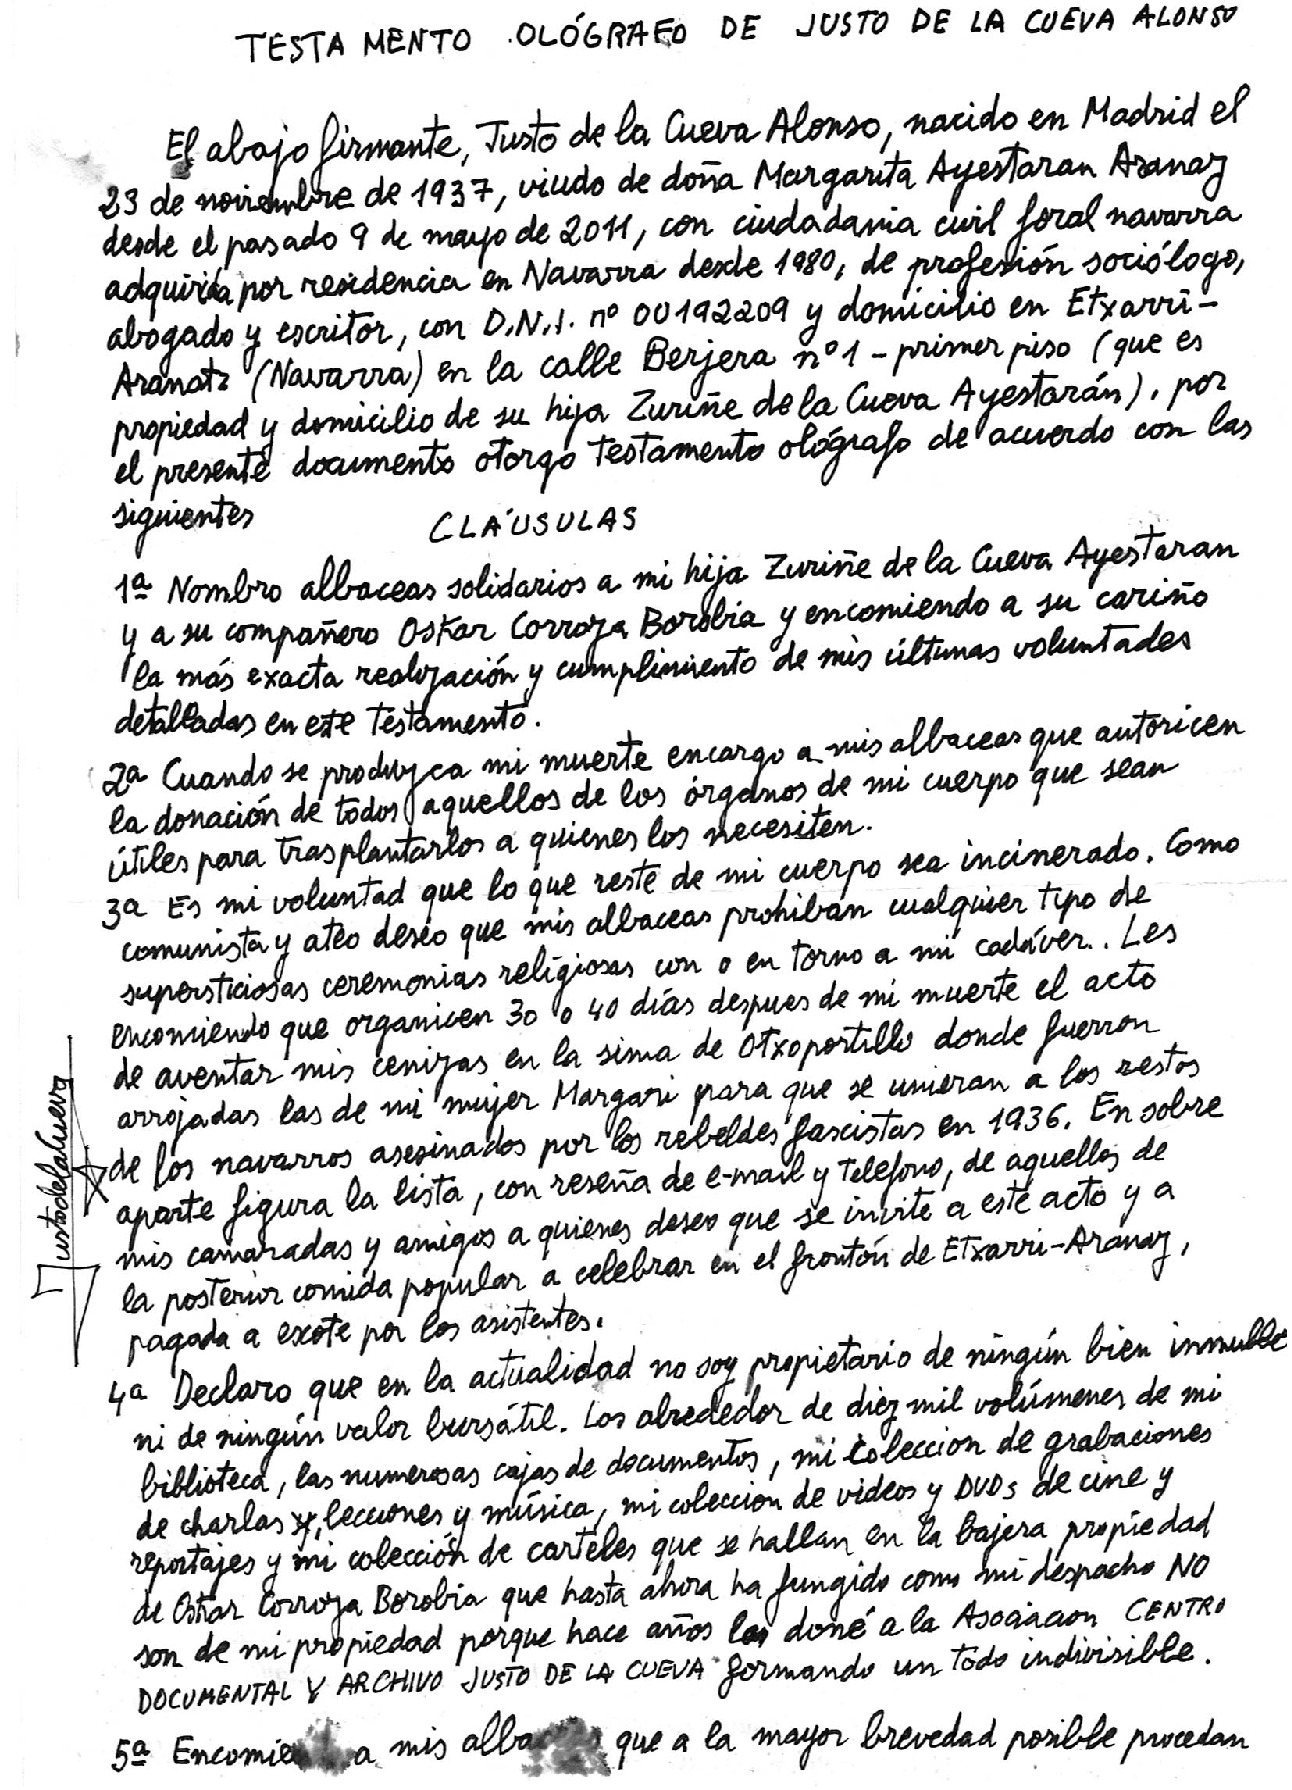 TESTAMENTO OLÓGRAFO DE JUSTO DE LA CUEVA ALONSO
El abajo firmante, Justo de la Cueva Alonso, nacido en Madrid el
23 de noviembre de 1937, viudo de doña Margarita Ayestaran Aranaz
desde el pasado 9 de mayo de 2011, con ciudadania civil foral navarra
adquirida por residencia en Navarra desde 1980, de profesión sociólogo,
abogado y escritor, con D.N.I. nº 00192209 y domicilio en Etxarri-
Aranatz (Navarra) en la calle Berjera nº 1 - primer piso (que es
propiedad y domicilio de su hija Zuriñe de la Cueva Ayestarán), por
el presente documento otorgo testamento ológrafo de acuerdo con las
siguientes
CLÁUSULAS
1ª Nombro albaceas solidarios a mi hija Zuriñe de la Cueva Ayestaran
y a su compañero Oskar Corroza Borobia y encomiendo a su cariño
la más exacta realización y cumplimiento de mis últimas voluntades
detalladas en este testamento.
2ª Cuando se produzca mi muerte encargo a mis albaceas que autoricen
la donación de todos aquellos de los órganos de mi cuerpo que sean
útiles para trasplantarlos a quienes los necesiten.
3ª Es mi voluntad que lo que reste de mi cuerpo sea incinerado. Como
comunista y ateo deseo que mis albaceas prohiban cualquier tipo de
supersticiosas ceremonias religiosas con o en torno a mi cadáver. Les
encomiendo que organicen 30 o 40 días despues de mi muerte el acto
de aventar mis cenizas en la sima de Otxoportillo donde fuerron
arrojadas las de mi mujer Margari para que se unieran a los restos
de los navarros asesinados por los rebeldes fascistas en 1936. En sobre
aparte figura la lista, con reseña de e-mail y telefono, de aquellos de
mis camaradas y amigos a quienes deseo que se invite a este acto y a
la posterior comida popular a celebrar en el frontón de Etxarri-Aranaz,
pagada a escote por los asistentes.
Justo de la Cueva
4ª Declaro que en la actualidad no soy propietario de ningún bien inmueble
ni de ningún valor bursátil. Los alrededor de diez mil volúmenes de mi
biblioteca, las numerosas cajas de documentos, mi coleccion de grabaciones
de charlas, lecciones y música, mi coleccion de videos y DVDs de cine y
reportajes y mi colección de carteles que se hallan en la bajera propiedad
de Oskar Corroza Borobia que hasta ahora ha fungido como mi despacho NO
son de mi propiedad porque hace años los doné a la Asociacion CENTRO
DOCUMENTAL Y ARCHIVO JUSTO DE LA CUEVA formando un todo indivisible.
5ª a mis que a la mayor brevedad posible procedan